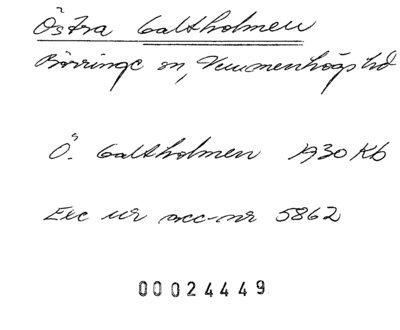 Östra Galtholmen
Börringe sn, Vemmenhögs hd
Ö. Galtholmen 1930 Kb
Exc ur acc-nr 5862
00024449